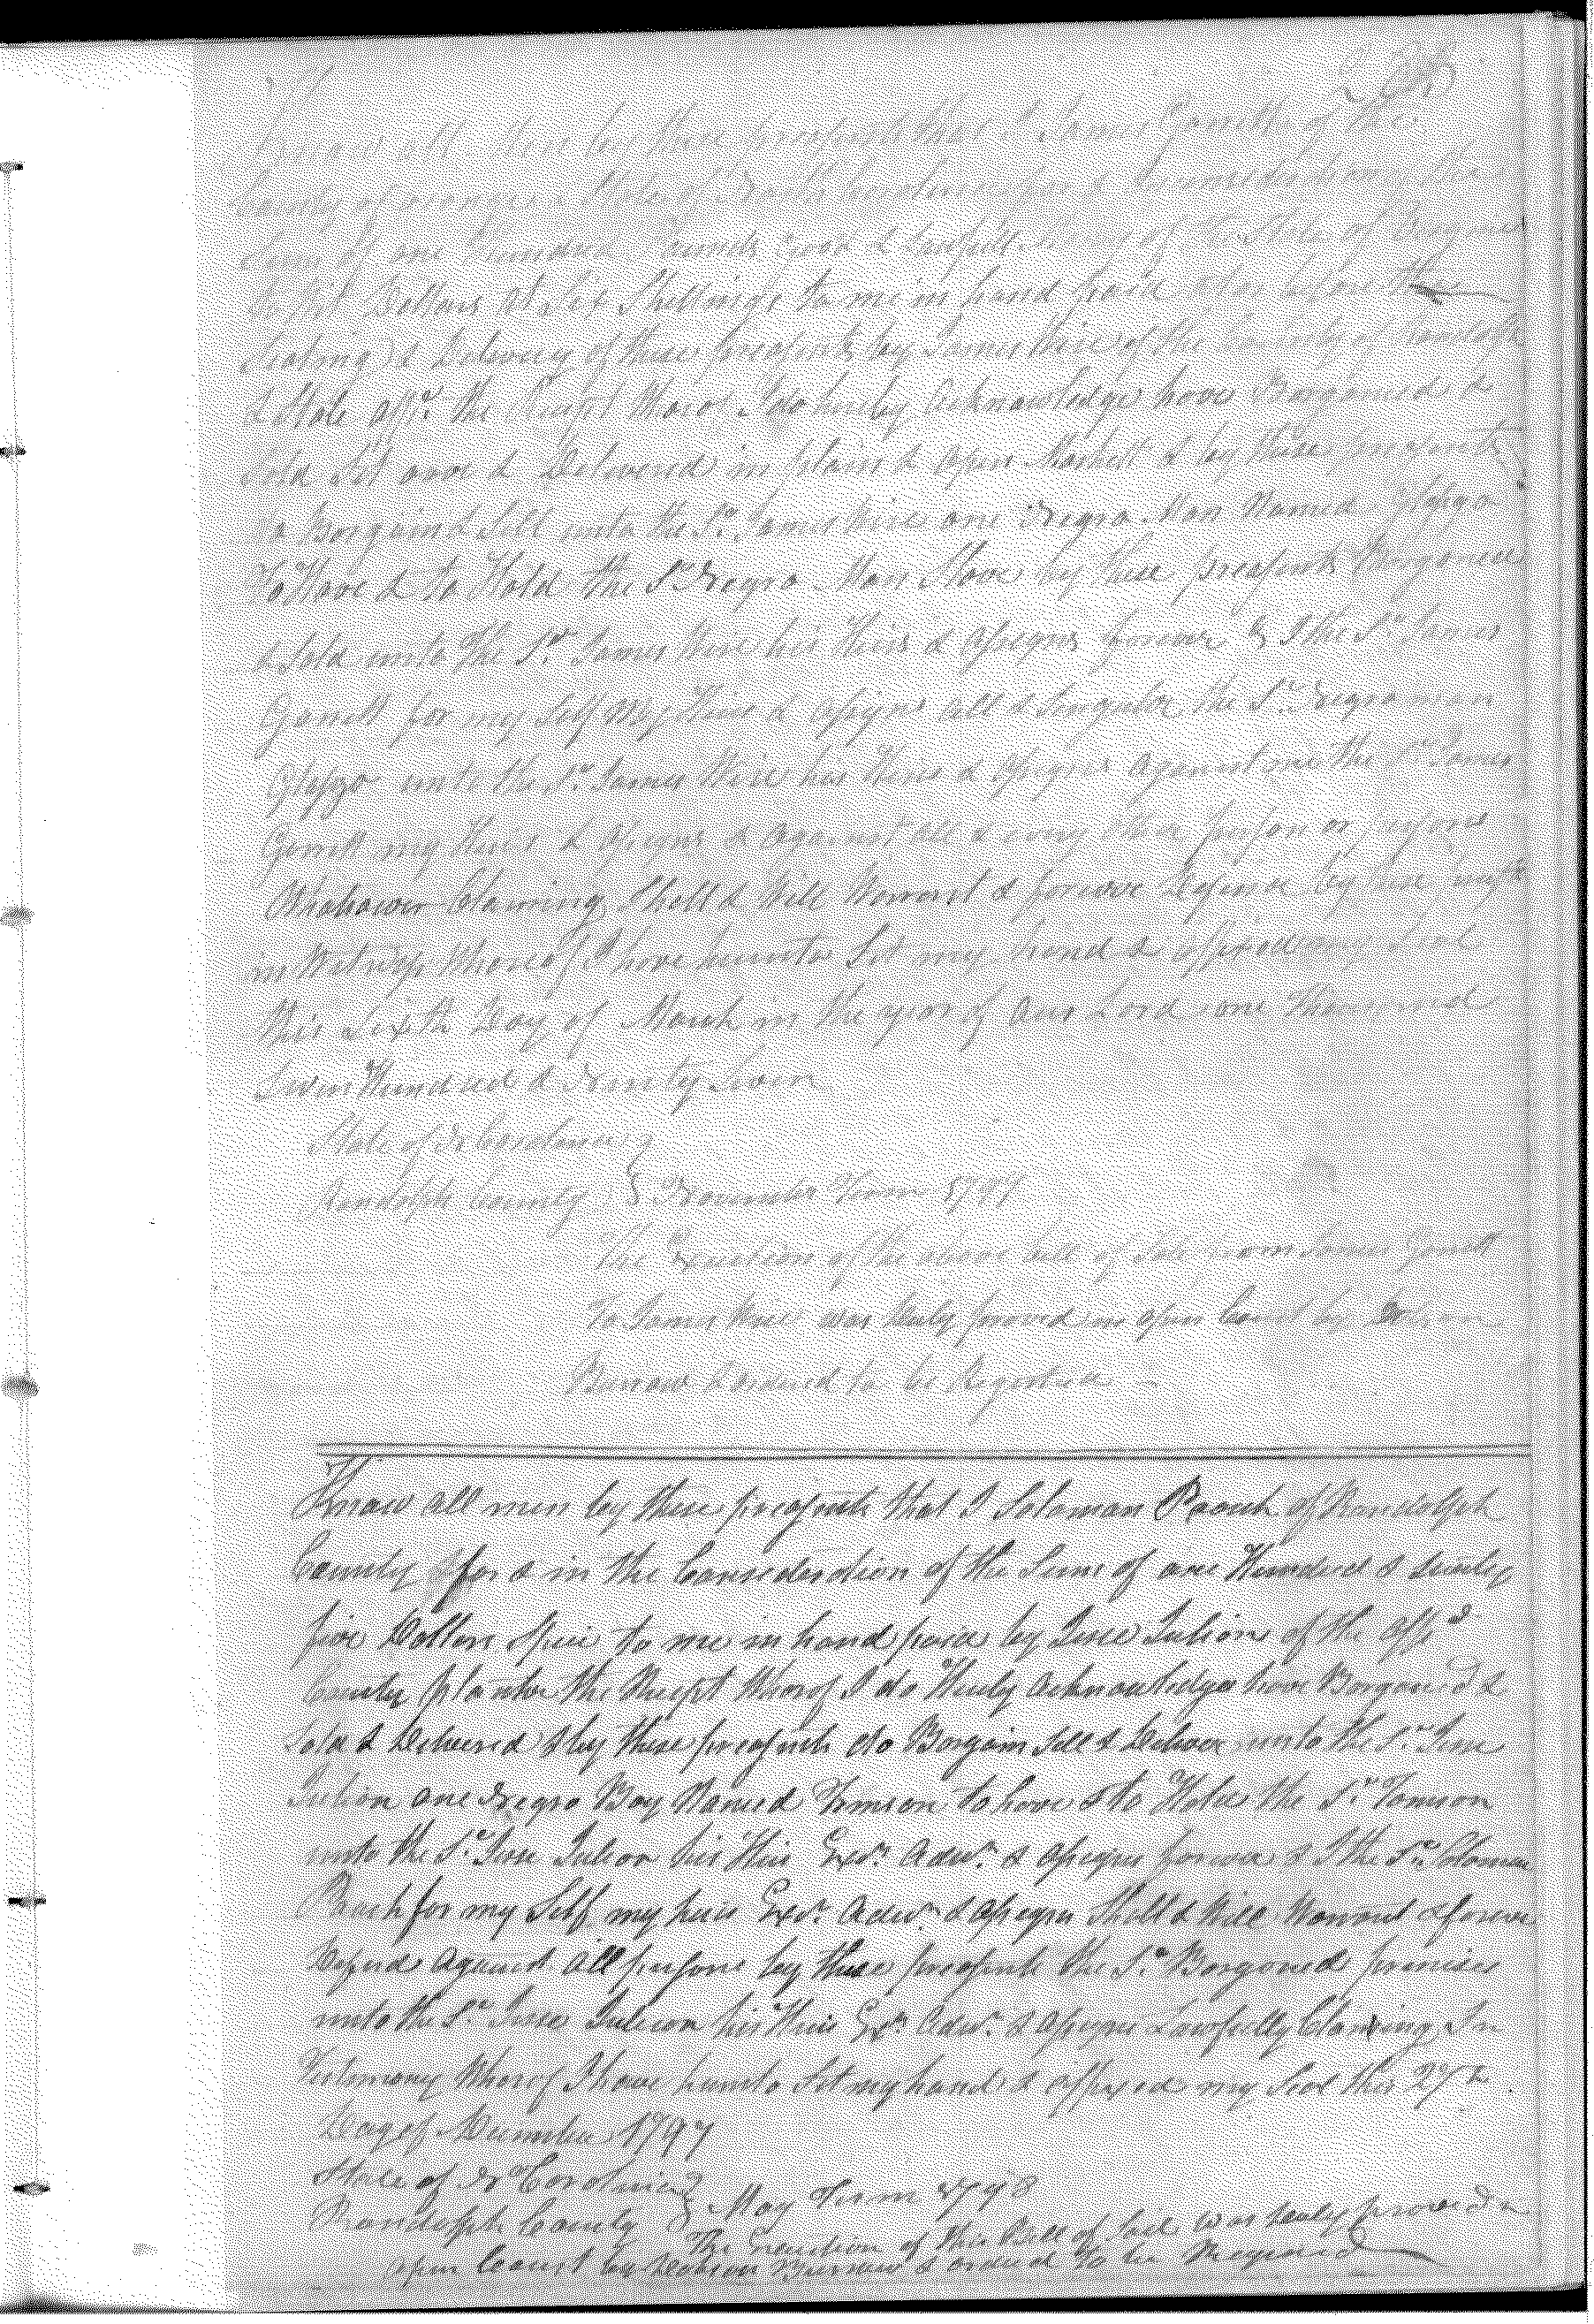 Know all Men by these presents that I James Garrett of the
County of State of North Carolina for & Consideration of the
Sum of one Hundred Pounds good & lawfull Money of the State of
Dollars at Six Shillings to me in hand paid at or before the
Sealing & Delivery of these presents by James Wise of the County of Randolph
& State affsd. the Receipt Whareof I do hereby Acknowledge have Bargained &
Sold Set over & Delivered in plain & Open Market & by these presents
do Bargain & Sell unto the Sd. James Wise one Negro Man Named Glasgo
To Have & to Hold the Sd. Negro Man Slave by these presents Bargained
& Sold unto the Sd. James Wise his Heirs & Assigns forever & I the Sd. James
Garrett for my Self My Heirs & Assigns all & Singular the Sd. Negro man
Glasgo unto the Sd. James Wise his Heirs & Assigns Against me the Sd. James
Garrett my Heirs & Assigns & Against all & every other person or persons
Whatsoever Claiming Shall & Will Warrant & forever Defend by these
in Witness Whareof I have hereunto Set my hand & affixed my Seal
this Sixth Day of March in the year of Our Lord one Thousand
Seven Hundred & Ninety Seven
State of N Carolina }
Randolph County } November Term 1797
The Execution of the above bill of Sale from James Garrett
To James Wise was duly proved in open Court by
Burrow & ordered to be Registered
Know all men by these presents that I Soloman Roach of Randolph
County for & in the Consideration of the Sum of one Hundred & Twenty
five Dollars Specie to me in hand paid by Jesse Julion of the Affsd
County planter the Receipt Whereof I do Hereby Acknowledge have Bargained &
Sold & Delivered & by these presents do Bargain Sell & Deliver unto the Sd. Jesse
Julion one Negro Boy Named Tomson to have & to Hold the Sd. Tomson
unto the Sd. Jesse Julion his Heirs Exr. Adm. & Assigns forever & I the Sd. Soloman
Roach for my Self my heirs Exr. Adm. & Assigns Shall & Will Warrant & forever
Defend Against All persons by these presents the Sd. Bargoned premises
unto the Sd. Jesse Julion his Heirs Exr. Adm. & Assigns Lawfully Claiming In
Testimony Whereof I have hereunto Set my hand & affixed my Seal this 27th
Day of December 1797
State of N Carolina }
Randolph County } May Term 1798
The Execution of this Bill of Sale was duly proved in
open Court by Dobson Burrow & ordered to be Registered